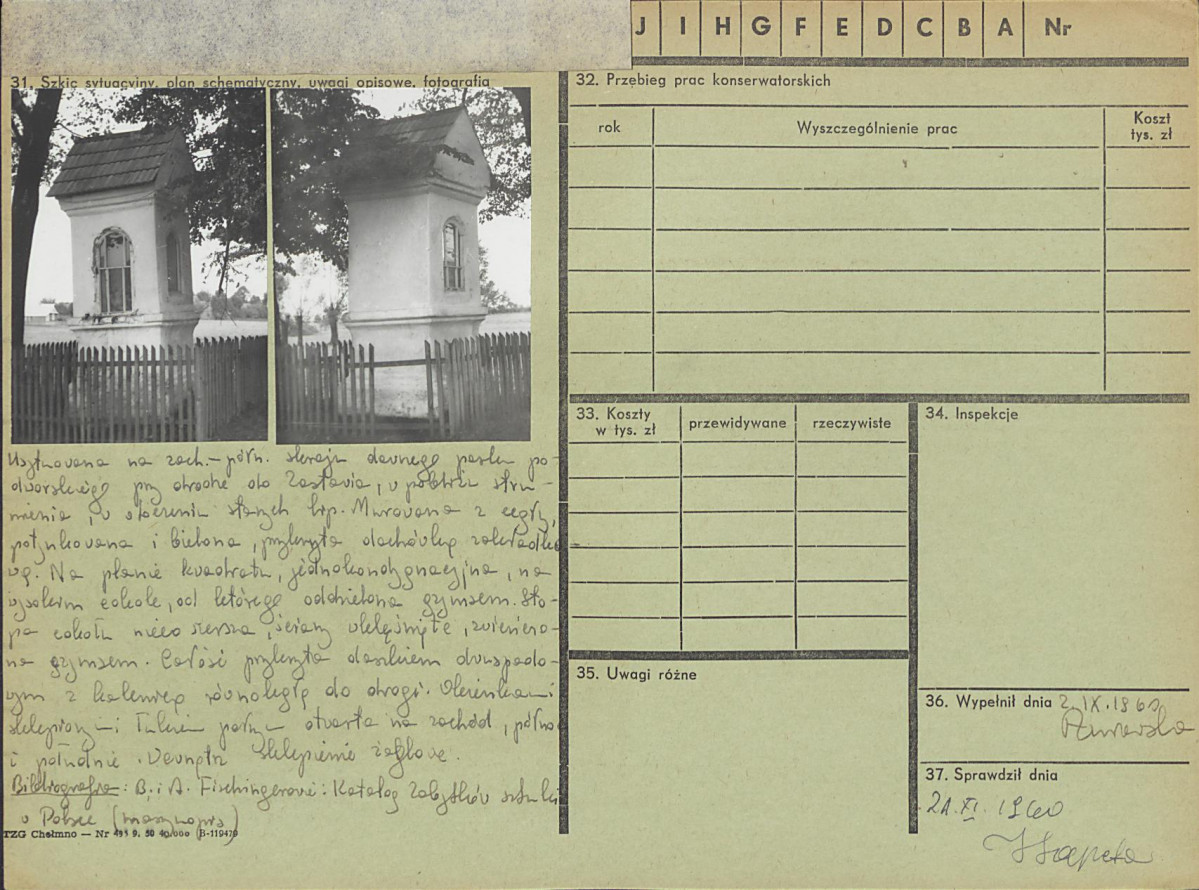 J I H G F E D C B A Nr
31. Szkic sytuacyjny, plan schematyczny, uwagi opisowe, fotografia
Usytuowana na zach.-półn. skraju dawnego parku po-
dworskiego przy drodze do Zastawia, w pobliżu stru-
mienia, w otoczeniu starych lip. Murowana z cegły,
potynkowana i bielona, przykryta dachówką zakładko-
wą. Na planie kwadratu, jednokondygnacyjna, na
wysokim cokole, od którego oddzielona gzymsem. Sto-
pa cokołu nieco szersza, ściany wklęśnięte, zwieńczo-
ne gzymsem. Całość przykryta daszkiem dwuspado-
wym z kalenicą równoległą do drogi. Okienkami
sklepionymi łukiem pełnym otwarta na zachód, północ
i południe. Wewnątrz sklepienie żaglowe.
Bibliografia: B. i A. Fischingerowie: Katalog Zabytków sztuki
w Polsce (maszynopis)
TZG Chełmno — Nr 9. 50 40/000 (B-11947)
32. Przebieg prac konserwatorskich
rok
Wyszczególnienie prac
Koszt
tys. zł
33. Koszty
w tys. zł
przewidywane
rzeczywiste
34. Inspekcje
35. Uwagi różne
36. Wypełnił dnia 2. IX. 1960
37. Sprawdził dnia
21. XI. 1960